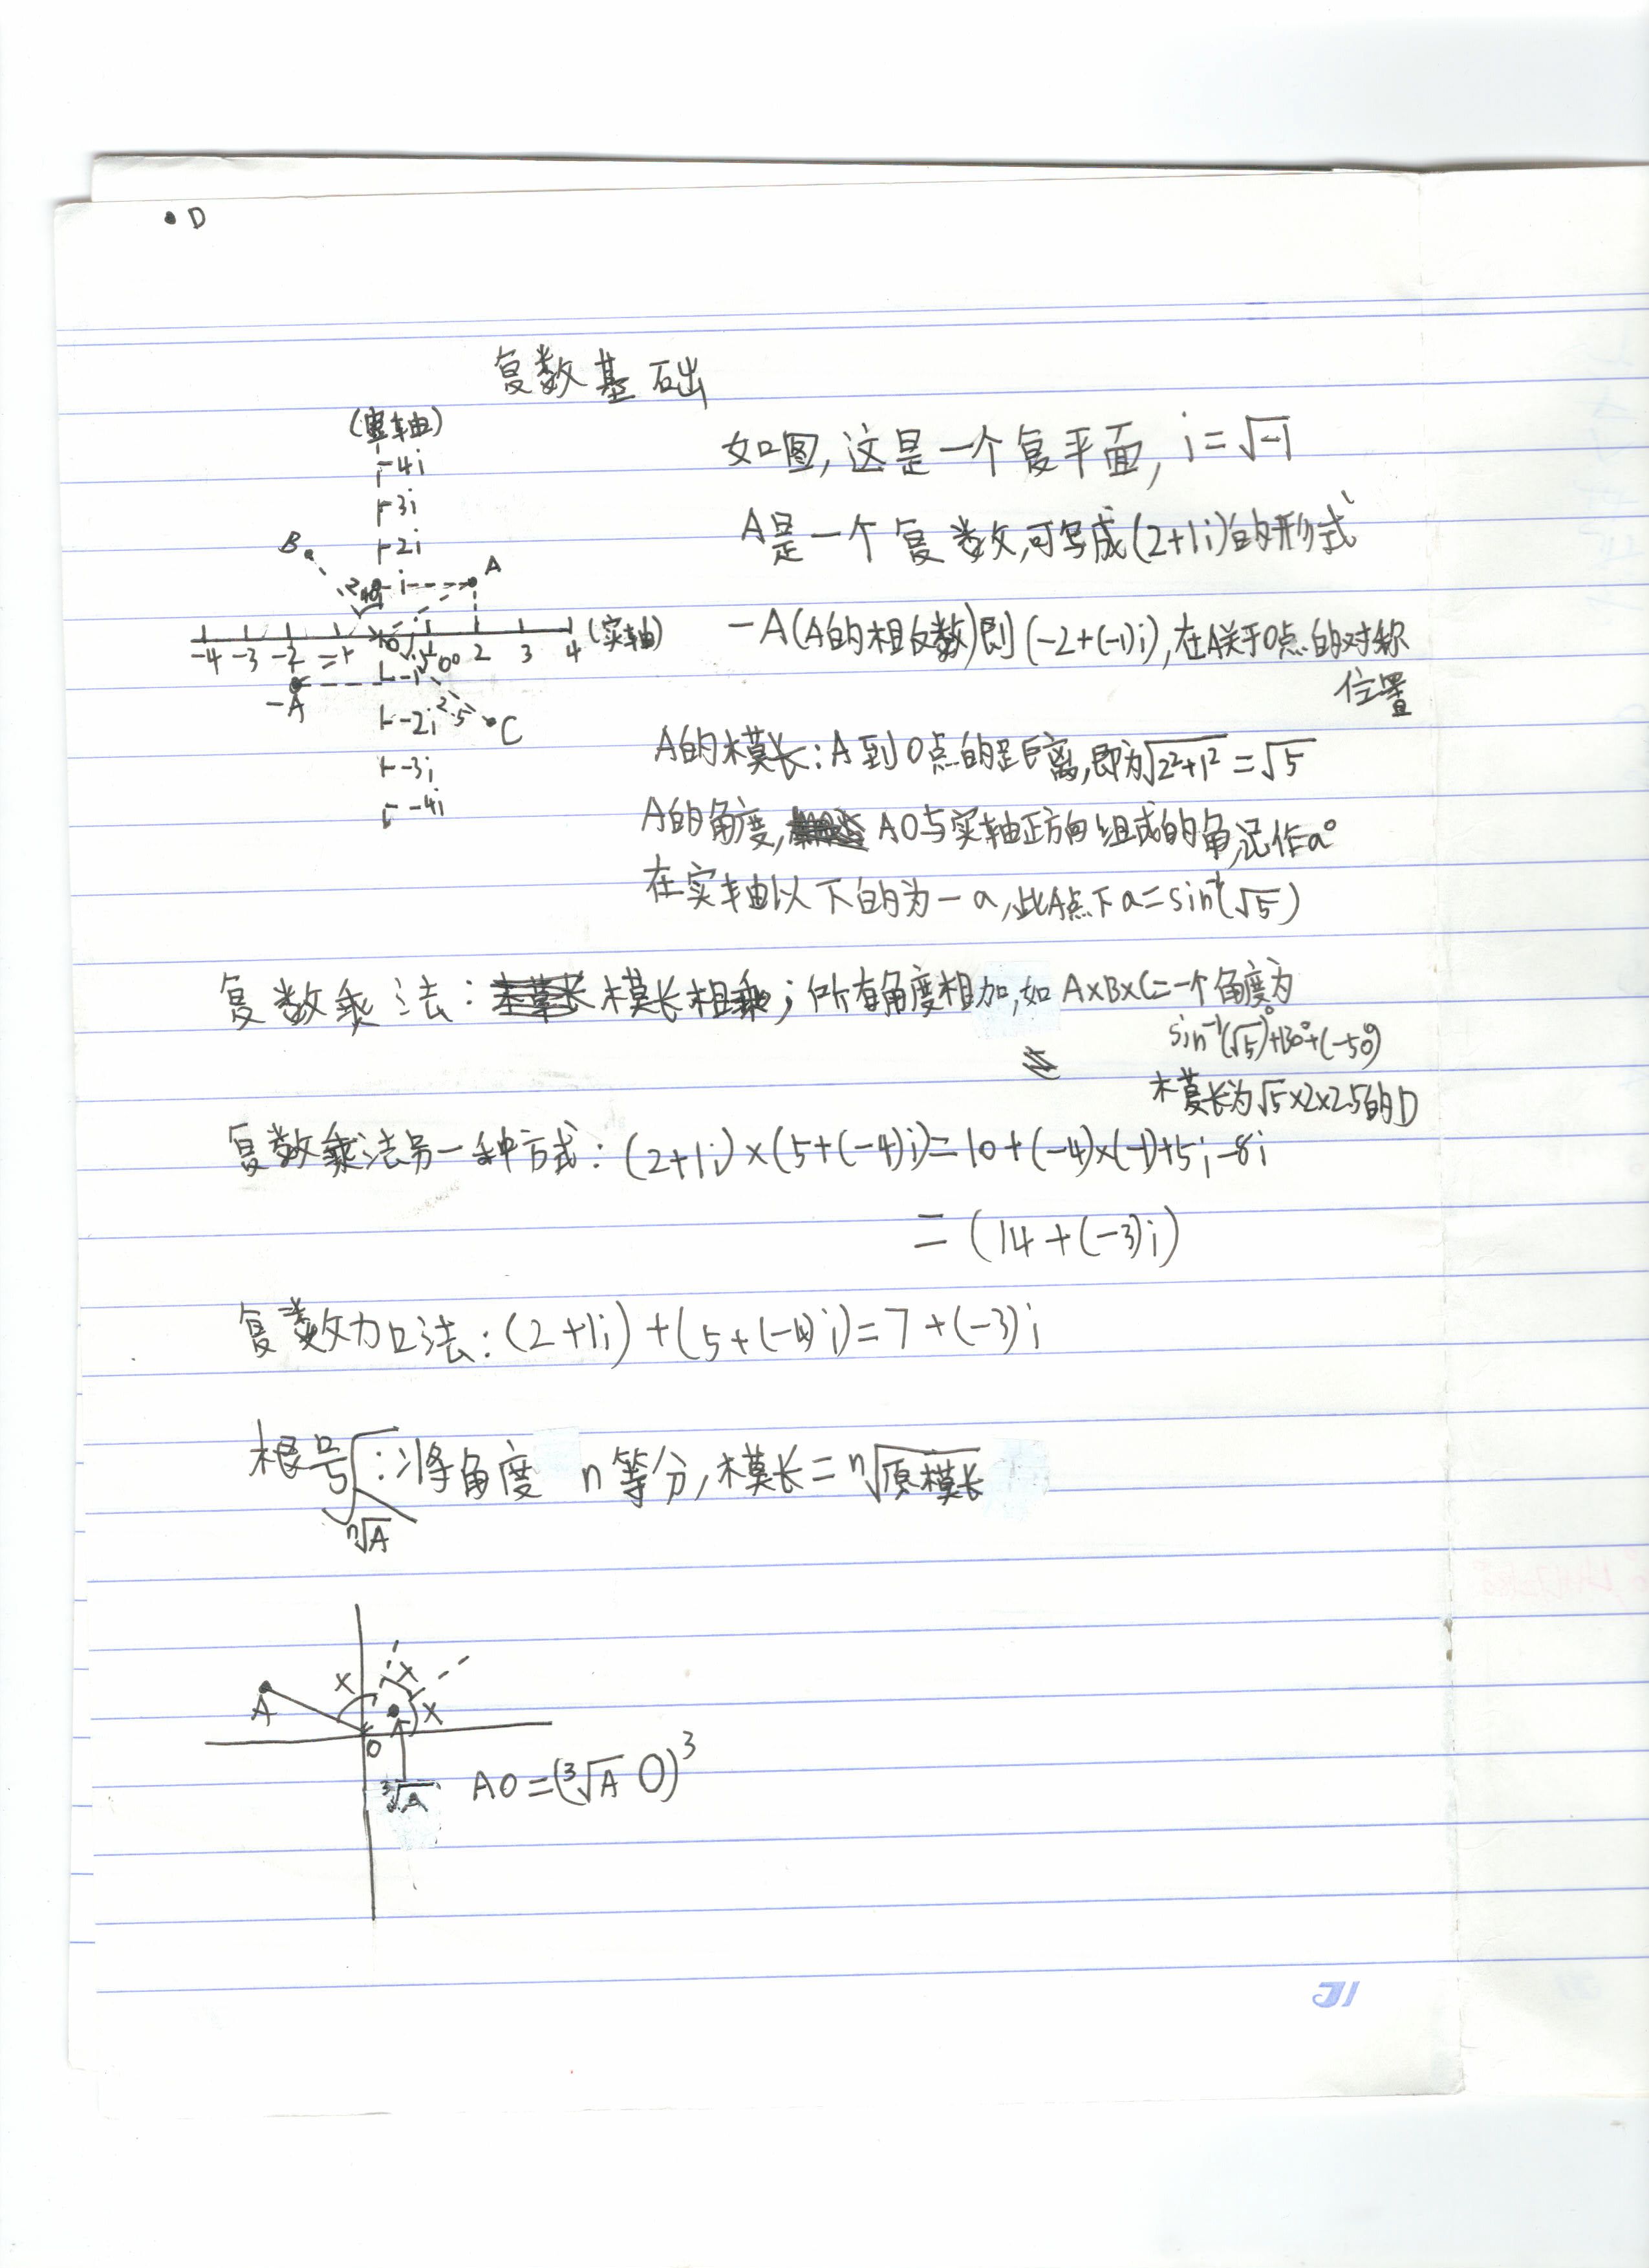 D
复数基础
(虚轴)
4i
3i
2i
i
B
A
-4 -3 -2 -1 0 1 2 3 4 (实轴)
-A
-i
-2i
2.5
C
-3i
-4i
如图,这是一个复平面, i=√-1
A是一个复数,可写成(2+1i)的形式
-A(A的相反数)则(-2+(-1)i),在A关于0点的对称
位置
A的模长:A到0点的距离,即为√2²+1² =√5
A的角度, AO与实轴正方向组成的角,记作a°
在实轴以下的为-a,此A点下a=sin⁻¹(√5)
复数乘法: 模长相乘;所有角度相加,如A×B×C=一个角度为
sin⁻¹(√5)°+130°+(-50°)
模长为√5×2×2.5的D
复数乘法另一种方式:(2+1i)×(5+(-4)i)=10+(-4)×(-1)+5i-8i
=(14+(-3)i)
复数加法:(2+1i)+(5+(-4)i)=7+(-3)i
根号√:将角度 n等分,模长=ⁿ√原模长
ⁿ√A
A
X X X
O
³√A AO=(³√A O)³
JI